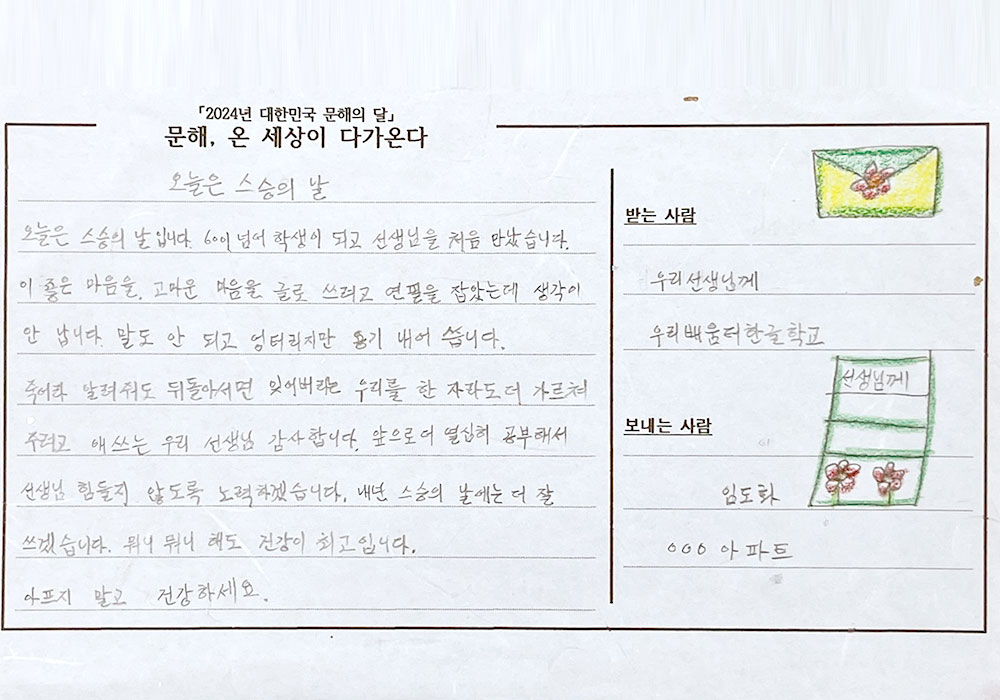 「2024년 대한민국 문해의 달」
문해, 온 세상이 다가온다
오늘은 스승의 날
오늘은 스승의 날 입니다. 60이 넘어 학생이 되고 선생님을 처음 만났습니다.
이 좋은 마음을, 고마운 마음을 글로 쓰려고 연필을 잡았는데 생각이
안 납니다. 말도 안 되고 엉터리지만 용기 내어 씁니다.
죽어라 알려줘도 뒤돌아서면 잊어버리는 우리를 한 자라도 더 가르쳐
주려고 애쓰는 우리 선생님 감사합니다. 앞으로 더 열심히 공부해서
선생님 힘들지 않도록 노력하겠습니다. 내년 스승의 날에는 더 잘
쓰겠습니다. 뭐니 뭐니 해도 건강이 최고입니다.
아프지 말고 건강하세요.
받는 사람
우리선생님께
우리배움터한글학교
선생님께
보내는 사람
임도화
○○○ 아파트